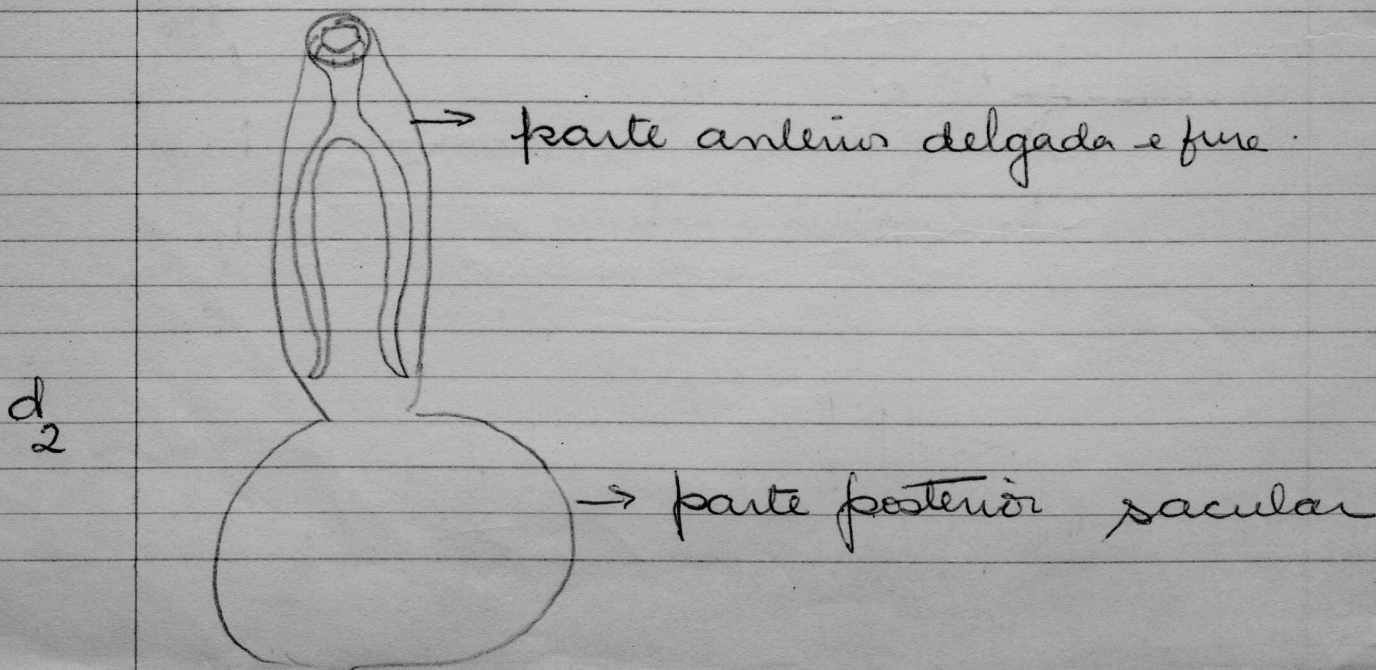 parte anterior delgada e fina.
d
2
parte posterior sacular